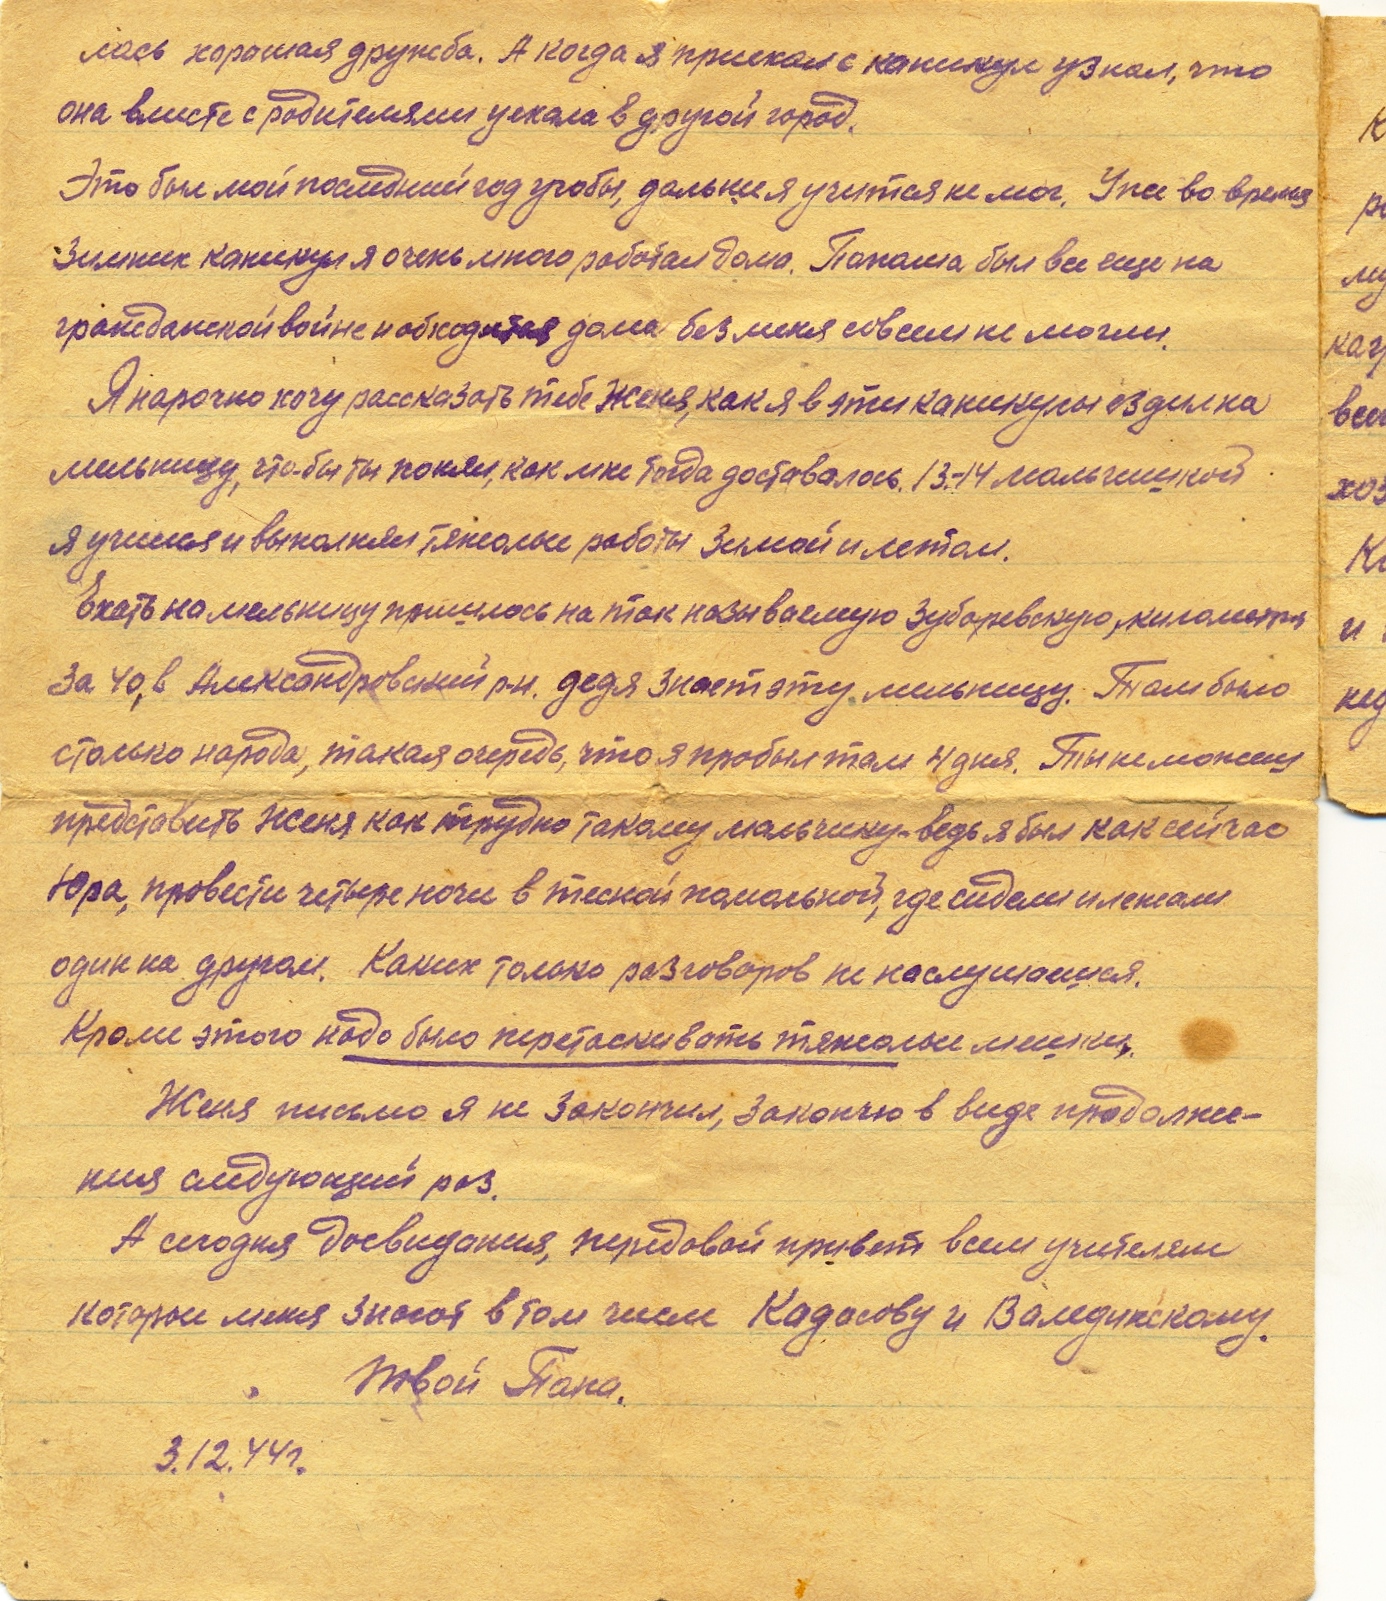 лась хорошая дружба. А когда я приехал с каникул узнал, что
она вместе с родителями уехала в другой город.
Это был мой последний год учобы, дальше я учится не мог. Уже во время
зимних каникул я очень много работал дома. Папаша был все еще на
гражданской войне и обходится дома без меня совсем не могли.
Я нарочно хочу рассказать тебе Женя, как я в эти каникулы ездил на
мельницу, что-бы ты понял, как мне тогда доставалось. 13-14 мальчишкой
я учился и выполнял тяжолые работы зимой и летом.
Ехать на мельницу пришлось на так называемую Зубаревскую, километра
за 40, в Александровский р-н. дедя знает эту мельницу. Там было
столько народа, такая очередь, что я пробыл там 4 дня. Ты не можеш
представить Женя как трудно такому мальчику-ведь я был как сейчас
Юра, провести четыре ночи в тесной помольной, где сидели и лежали
один на другом. Каких только разговоров не наслушаешся.
Кроме этого надо было перетаскивать тяжолые мешки.
Женя письмо я не закончил, закончю в виде продолже-
ния следующий раз.
А сегодня досвидания, передовай привет всем учителям
которые меня знают в том числе Кадасову и Валединскому.
Твой Папа.
3.12.44г.
К
му
каг
хоз
и
нед